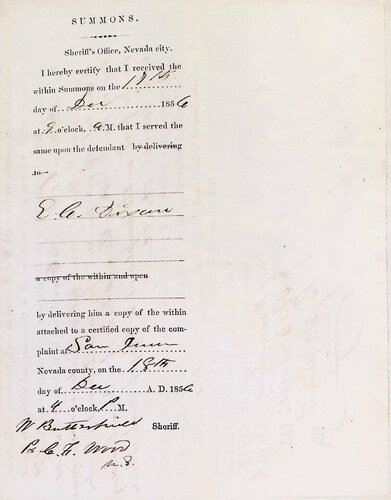 SUMMONS.
Sheriff's Office, Nevada city.
I hereby certify that I received the
within Summons on the 18th
day of Dec 1856
at 9 o'clock, A.M. that I served the
same upon the defendant by delivering
to
E. G.
a copy of the within and upon
by delivering him a copy of the within
attached to a certified copy of the com-
plaint at San Juan
Nevada county, on the 18th
day of Dec A. D. 1856
at 4 o'clock, P M.
W Butterfield Sheriff.
C. F. Wood